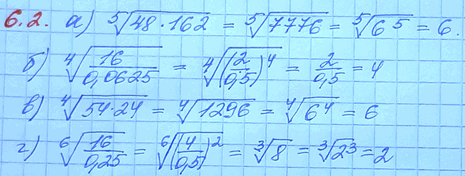 6.2. а) ⁵√(48·162) = ⁵√7776 = ⁵√(6⁵) = 6.
б) ⁴√(16/0,0625) = ⁴√((2/0,5)⁴) = 2/0,5 = 4
в) ⁴√(54·24) = ⁴√1296 = ⁴√(6⁴) = 6
г) ⁶√(16/0,25) = ⁶√((4/0,5)²) = ³√8 = ³√(2³) = 2